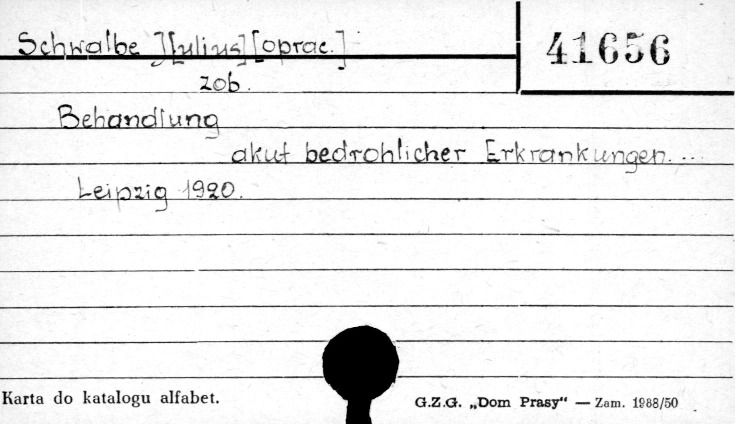 Schwalbe J[ulius] [oprac.]
41656
zob.
Behandlung
akut bedrohlicher Erkrankungen...
Leipzig 1920.
Karta do katalogu alfabet.
G.Z.G. „Dom Prasy“ — Zam. 1988/50